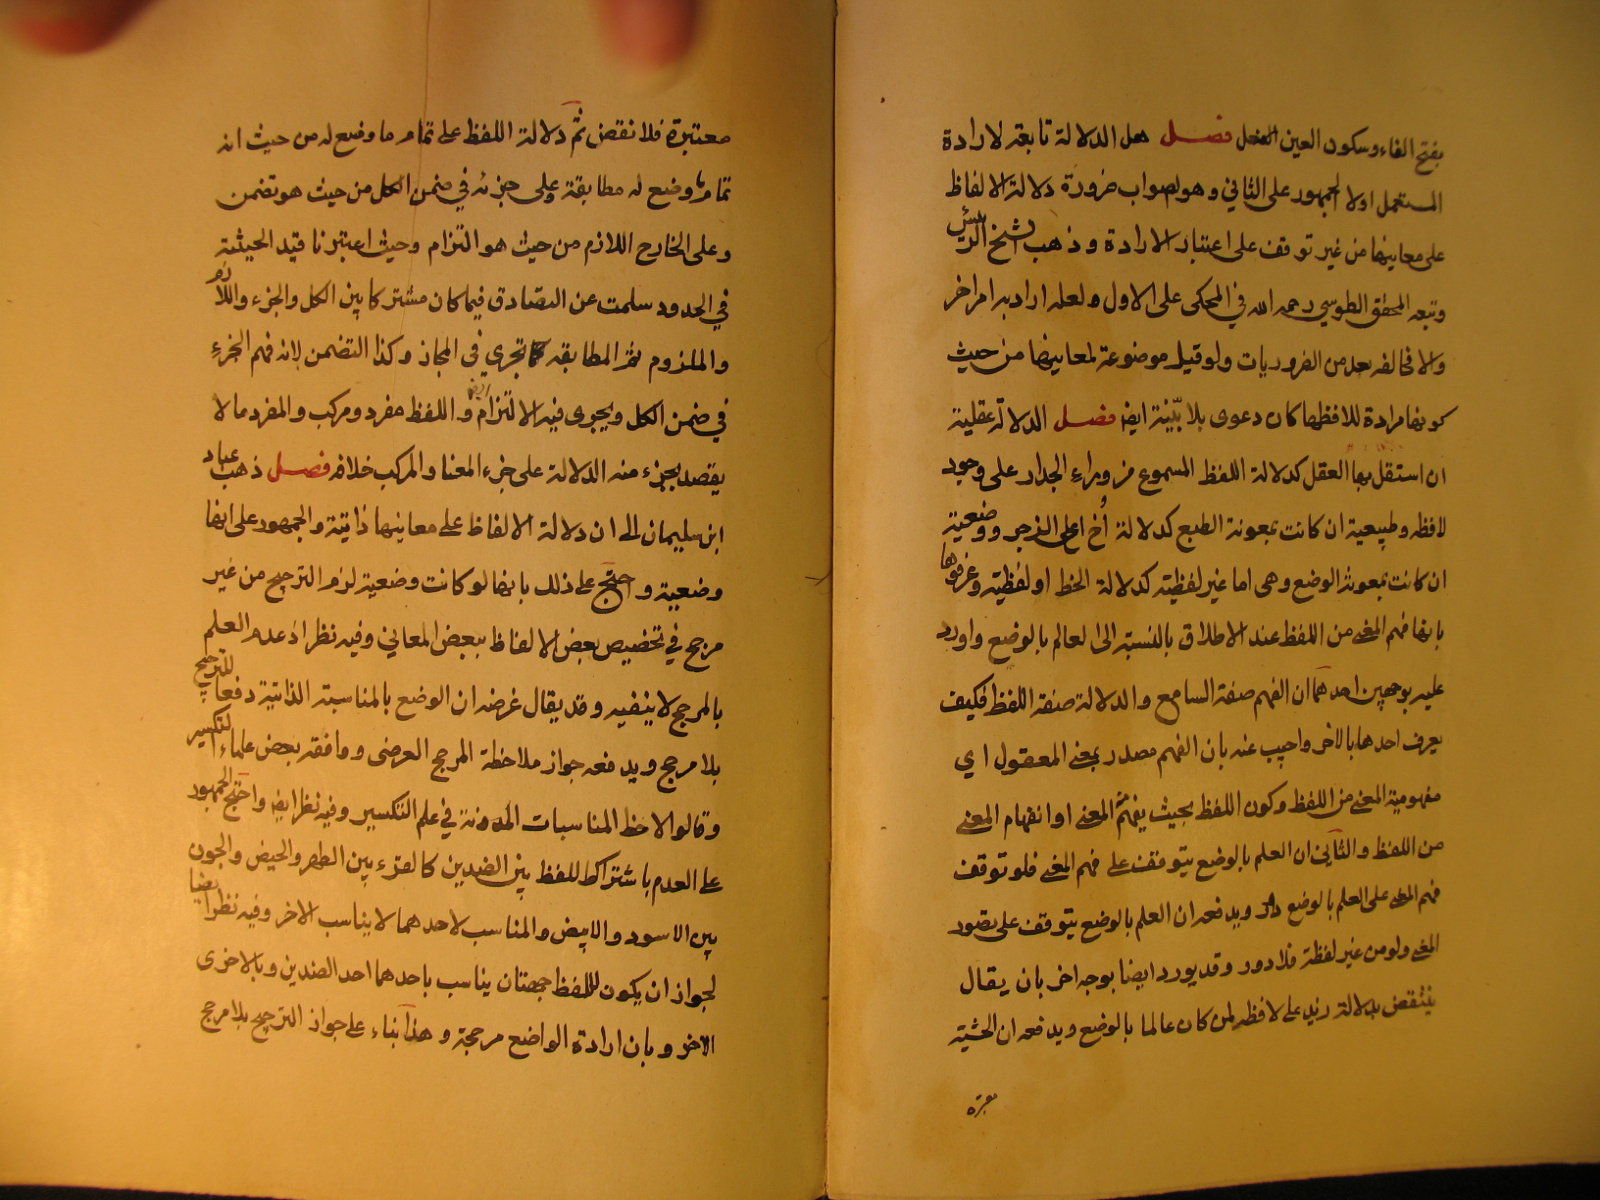 بفتح الفاء وسكون العين فصل هل الدلالة تابعة لارادة
المستعمل اولا الجمهور على الثاني وهو لصواب ضرورة دلالة الالفاظ
على معانيها من غير توقف على اعتبار الارادة وذهب الشيخ الرئيس
وتبعه المحقق الطوسي رحمه الله في المحكى على الاول ولعله اراد به امرا خر
والا فخالفه بعد من الضروريات ولو قيل موضوعة لمعانيها من حيث
كونها مرادة للافظها كان دعوى بلا بيّنة ايضا فصل الدلالة عقلية
ان استقل بها العقل كدلالة اللفظ المسموع من وراء الجدار على وجود
لافظه وطبيعية ان كانت بمعونة الطبع كدلالة أخ اعلى الزجر ووضعية
ان كانت بمعونة الوضع وهى اما غير لفظية كدلالة الخط او لفظية وعرفوها
بانها فهم المعنى من اللفظ عند الاطلاق بالنسبة الى العالم بالوضع واورد
عليه بوجهين احدهما ان الفهم صفة السامع والدلالة صفة اللفظ فكيف
يعرف احدها بالاخر واجيب عنه بان الفهم مصدر بمعنى المعقول اي
مفهومية المعنى من اللفظ وكون اللفظ بحيث يفهم المعنى او انفهام المعنى
من اللفظ والثاني ان العلم بالوضع يتوقف على فهم المعنى فلو توقف
فهم المعنى على العلم بالوضع دار ويدفعه ان العلم بالوضع يتوقف على تصور
المعنى ولو من غير لفظة فلا دور وقد يورد ايضا بوجه اخر بان يقال
ينتقض بدلالة زيد على لافظه لمن كان عالما بالوضع ويدفعه ان الحيثية
معتبرة
معتبرة فلا نقض ثمّ دلالة اللفظ على تمام ما وضع له من حيث انه
تمام ما وضع له مطابقة وعلى جزئه في ضمن الكل من حيث هو تضمن
وعلى الخارج اللازم من حيث هو التزام وحيث اعتبرنا قيد الحيثية
في الحدود سلمت عن التصادق فيما كان مشتركا بين الكل والجزء واللازم
والملزوم ثم المطابقة كما تجري في المجاز وكذا التضمن لانه فهم الجزء
في ضمن الكل ويجرى فيه الالتزام ايضا واللفظ مفرد ومركب والمفرد ما لا
يقصد بجزء منه الدلالة على جزء المعنا والمركب خلافه فصل ذهب عباد
ابن سليمان الى ان دلالة الالفاظ على معانيها ذاتية والجمهور على انها
وضعية واحتج على ذلك بانها لو كانت وضعية لزم الترجيح من غير
مرجح في تخصيص بعض الالفاظ ببعض المعاني وفيه نظر اذ عدم العلم
بالمرجح لا ينفيه وقد يقال غرضه ان الوضع بالمناسبة الذاتية دفعا للترجيح
بلا مرجح ويدفعه جواز ملاحظة المرجح العرضى ووافقه بعض علماء التكسير
وقالوا لاحظ المناسبات المدونة في علم التكسير وفيه نظر ايضا واحتج الجمهور
على العدم باشتراك اللفظ بين الضدين كالقرء بين الطهر والحيض والجون
بين الاسود والابيض والمناسب لاحدهما لا يناسب الاخر وفيه نظر ايضا
لجواز ان يكون للفظ جهتان يناسب باحدهما احد الضدين وبالاخرى
الاخر وبان ارادة الواضع مرجحة وهذا بناء على جواز الترجيح بلا مرجح